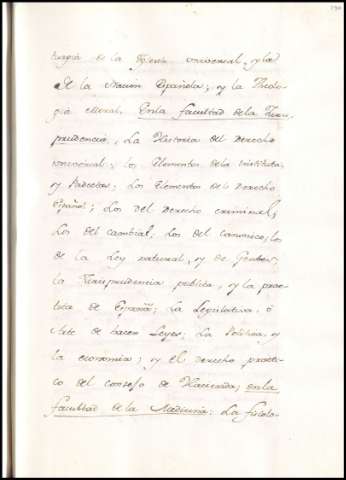 de la Iglesia universal, y la
de la Nacion Española; y la Theolo-
gia Moral. En la facultad de la Juris
prudencia, La Historia del Derecho
universal; los Elementos de la Instituta,
y Pandectas; Los Elementos del Derecho
Español; Los del Derecho criminal;
Los del cambial; Los del canonico; los
de la Ley natural, y de Gentes;
la Jurisprudencia publica, y la prac-
tica de España; La Legislativa, ó
Arte de hacer Leyes; La Politica, y
la economia; y el derecho practi-
co del consejo de Hacienda; en la
facultad de la Medicina; La fisiolo-